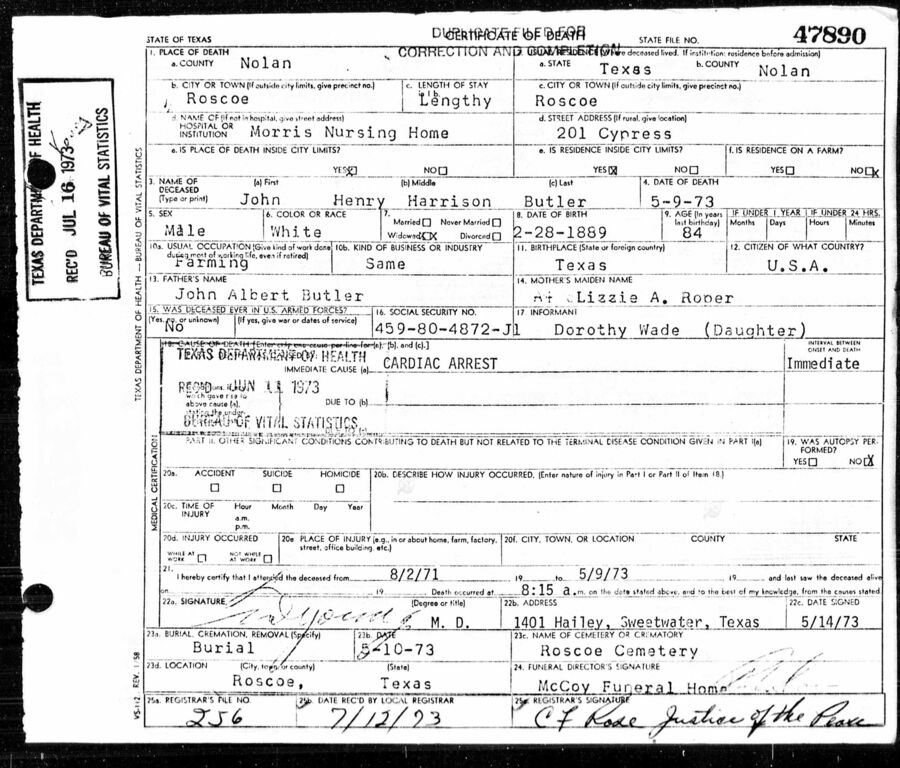 STATE OF TEXAS
DUPLICATE FILED FOR
CERTIFICATE OF DEATH
CORRECTION AND COMPLETION
STATE FILE NO. 47890
TEXAS DEPARTMENT OF HEALTH
REC'D JUL 16 1973
BUREAU OF VITAL STATISTICS
TEXAS DEPARTMENT OF HEALTH — BUREAU OF VITAL STATISTICS
1. PLACE OF DEATH
deceased lived. If institution: residence before admission)
a. COUNTY Nolan
a. STATE Texas b. COUNTY Nolan
b. CITY OR TOWN (If outside city limits, give precinct no.) Roscoe
c. LENGTH OF STAY in 1 b. Lengthy
c. CITY OR TOWN (If outside city limits, give precinct no.) Roscoe
d. NAME OF (If not in hospital, give street address) HOSPITAL OR INSTITUTION Morris Nursing Home
d. STREET ADDRESS (If rural, give location) 201 Cypress
e. IS PLACE OF DEATH INSIDE CITY LIMITS? YES☒ NO☐
e. IS RESIDENCE INSIDE CITY LIMITS? YES☒ NO☐
f. IS RESIDENCE ON A FARM? YES☐ NO☒
3. NAME OF DECEASED (Type or print) (a) First (b) Middle (c) Last
John Henry Harrison Butler
4. DATE OF DEATH 5-9-73
5. SEX Male
6. COLOR OR RACE White
7. Married☐ Never Married☐ Widowed☒ Divorced☐
8. DATE OF BIRTH 2-28-1889
9. AGE (In years last birthday) 84
IF UNDER 1 YEAR Months Days
IF UNDER 24 HRS. Hours Minutes
10a. USUAL OCCUPATION (Give kind of work done during most of working life, even if retired) Farming
10b. KIND OF BUSINESS OR INDUSTRY Same
11. BIRTHPLACE (State or foreign country) Texas
12. CITIZEN OF WHAT COUNTRY? U.S.A.
13. FATHER'S NAME John Albert Butler
14. MOTHER'S MAIDEN NAME Lizzie A. Roper
15. WAS DECEASED EVER IN U.S. ARMED FORCES? (Yes, no, or unknown) No (If yes, give war or dates of service)
16. SOCIAL SECURITY NO. 459-80-4872-J1
17. INFORMANT Dorothy Wade (Daughter)
18. CAUSE OF DEATH [Enter only one cause per line for (a), (b), and (c).]
INTERVAL BETWEEN ONSET AND DEATH
TEXAS DEPARTMENT OF HEALTH
IMMEDIATE CAUSE (a) CARDIAC ARREST Immediate
REC'D JUN 11 1973
which gave rise to above cause (a), stating the under-
DUE TO (b)
BUREAU OF VITAL STATISTICS
PART II. OTHER SIGNIFICANT CONDITIONS CONTRIBUTING TO DEATH BUT NOT RELATED TO THE TERMINAL DISEASE CONDITION GIVEN IN PART I(a)
19. WAS AUTOPSY PERFORMED? YES☐ NO☒
MEDICAL CERTIFICATION
20a. ACCIDENT SUICIDE HOMICIDE
20b. DESCRIBE HOW INJURY OCCURRED. (Enter nature of injury in Part I or Part II of Item 18.)
20c. TIME OF INJURY Hour Month Day Year
a.m.
p.m.
20d. INJURY OCCURRED WHILE AT WORK ☐ NOT WHILE AT WORK ☐
20e PLACE OF INJURY (e.g., in or about home, farm, factory, street, office building, etc.)
20f. CITY, TOWN, OR LOCATION COUNTY STATE
21. I hereby certify that I attended the deceased from 8/2/71 19 to 5/9/73 19 and last saw the deceased alive
on 19 Death occurred at 8:15 a.m. on the date stated above, and to the best of my knowledge, from the causes stated.
22a. SIGNATURE (Degree or title) M. D.
22b. ADDRESS 1401 Hailey, Sweetwater, Texas
22c. DATE SIGNED 5/14/73
23a. BURIAL, CREMATION, REMOVAL (Specify) Burial
23b. DATE 5-10-73
23c. NAME OF CEMETERY OR CREMATORY Roscoe Cemetery
23d. LOCATION (City, town, or county) (State)
Roscoe, Texas
24. FUNERAL DIRECTOR'S SIGNATURE McCoy Funeral Home
25a. REGISTRAR'S FILE NO. 256
25b. DATE REC'D BY LOCAL REGISTRAR 7/12/73
25c. REGISTRAR'S SIGNATURE C F Rose Justice of the Peace
VS-112 REV. 1/58